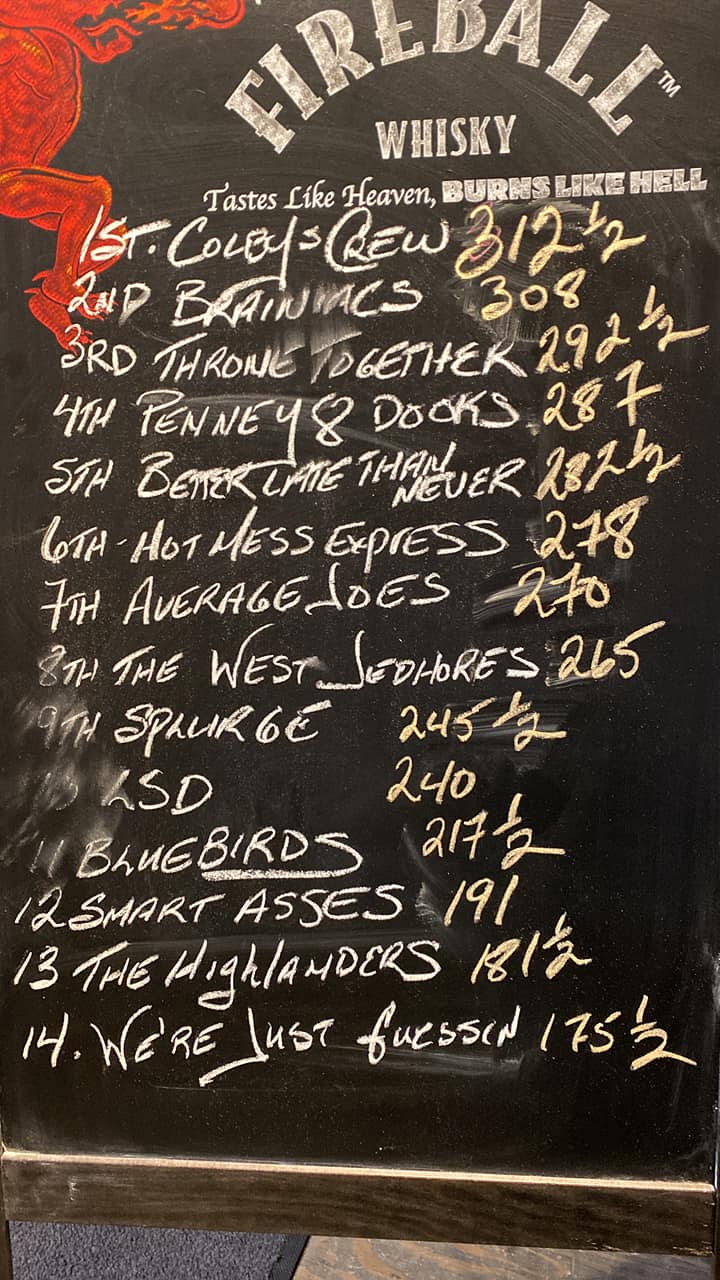 FIREBALL™
WHISKY
Tastes Like Heaven, BURNS LIKE HELL
1ST. COLBY'S CREW 312 1/2
2ND BRAINIACS 308
3RD THRONE TOGETHER 292 1/2
4TH PENNEY & DOOKS 287
5TH BETTER LATE THAN NEVER 282 1/2
6TH - HOT MESS EXPRESS 278
7TH AVERAGE JOES 270
8TH THE WEST JEDHORES 265
9TH SPLURGE 245 1/2
10 LSD 240
11 BLUEBIRDS 217 1/2
12 SMART ASSES 191
13 THE HIGHLANDERS 181 1/2
14. WE'RE JUST GUESSIN 175 1/2